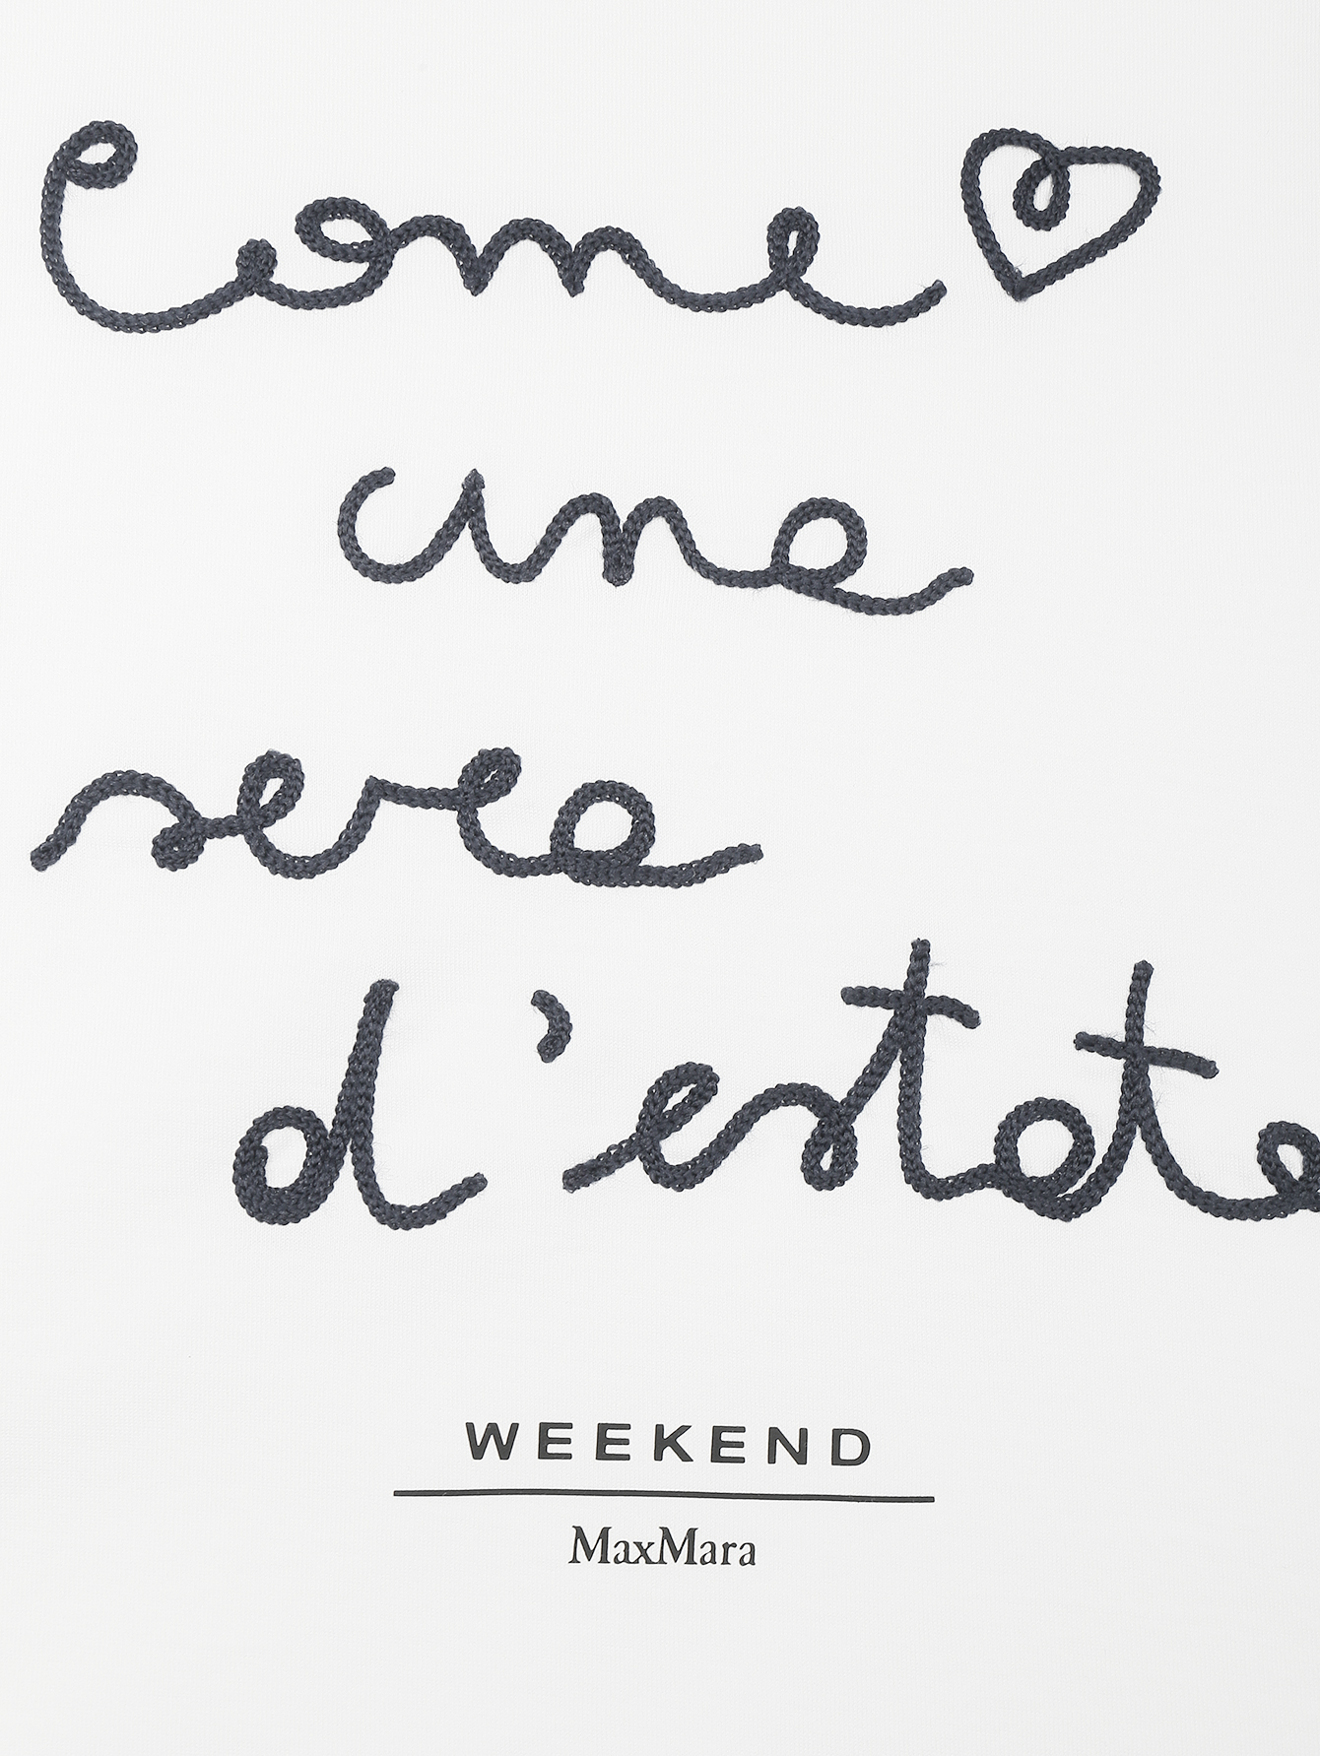 Come
una
sera
d'estate
WEEKEND
MaxMara